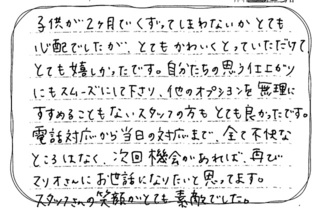 子供が2ヶ月でぐずってしまわないかとても
心配でしたが、とてもかわいくとっていただけて
とても嬉しかったです。自分たちの思う仕上がり
にもスムーズにして下さり、他のオプションを無理に
すすめることもないスタッフの方もとても良かったです。
電話対応から当日の対応まで、全て不快な
ところはなく、次回機会があれば、再び
マリオさんにお世話になりたいと思ってます。
スタッフさんの笑顔がとても素敵でした。